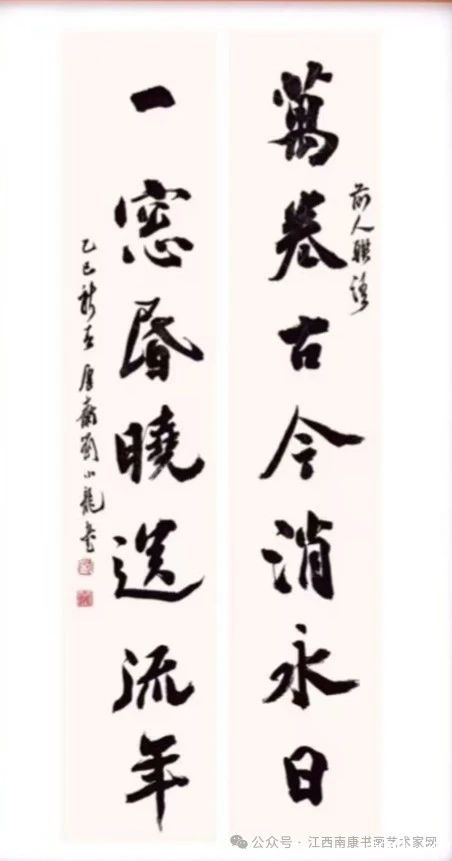 萬卷古今消永日
前人聯語
一窓昏曉送流年
乙巳新春 厚齋劉小龍書
公众号 · 江西南康书画艺术家网